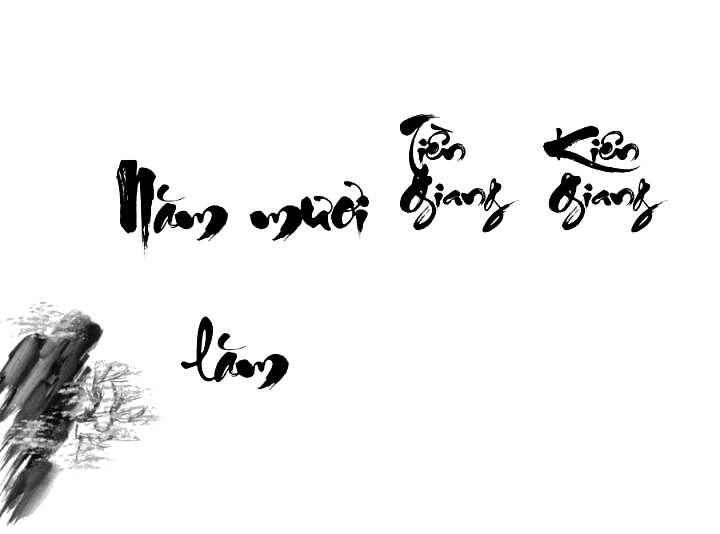 Năm mươi
lăm
Tiền
Giang
Kiên
Giang